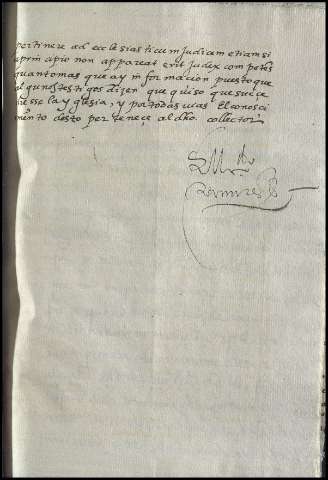 pertinere ad ecclesiasticum judicam etiam si
a prin cipio non appareat erit judex competēs
quantomas que ay in formacion puesto que
al gunos testigos dizen que quiso que suce
iesse la yglesia, y pa todas vias El conosci
miēnto desto per tenece al dho. collector
Ramirez